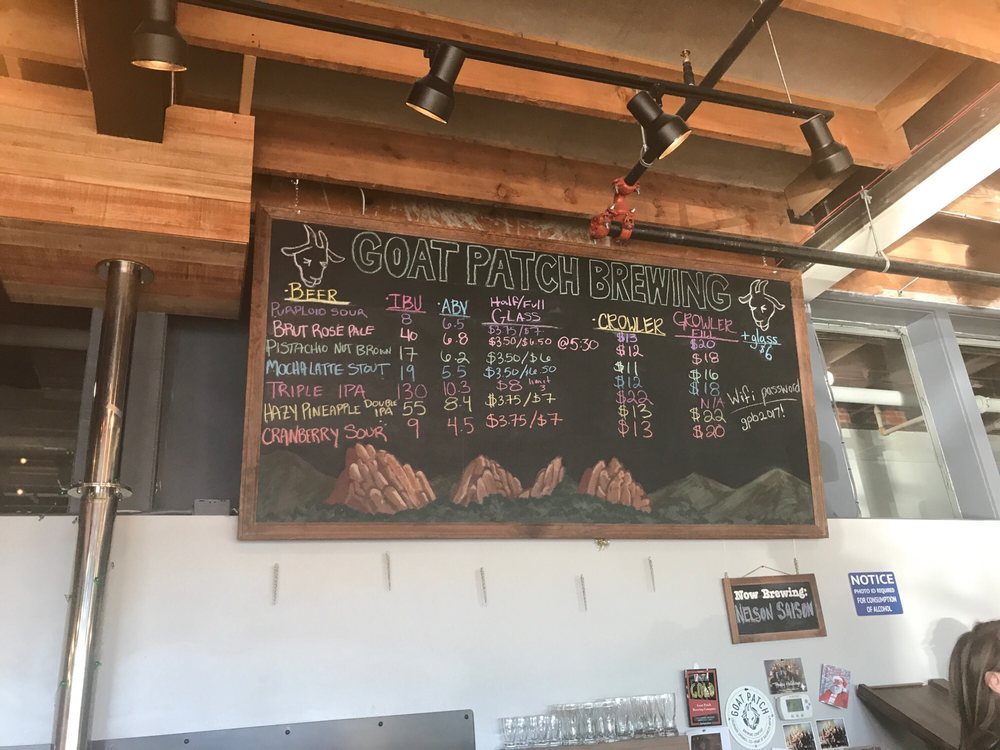 GOAT PATCH BREWING
BEER IBU ABV Half/Full GLASS CROWLER GROWLER FILL + glass $6
PURPLOID SOUR 8 6.5 $3.75/$7 $13 $20
BRUT ROSÉ PALE 40 6.8 $3.50/$6.50 @5:30 $12 $18
PISTACHIO NUT BROWN 17 6.2 $3.50/$6 $11 $16
MOCHA LATTE STOUT 19 5.5 $3.50/$6.50 $12 $18
TRIPLE IPA 130 10.3 $8 limit 3 $22 N/A
HAZY PINEAPPLE DOUBLE IPA 55 8.4 $3.75/$7 $13 $22
CRANBERRY SOUR 9 4.5 $3.75/$7 $13 $20
Wifi password
gpb2017!
Now Brewing:
NELSON SAISON
NOTICE
PHOTO ID REQUIRED
FOR CONSUMPTION
OF ALCOHOL
GOLD
GOAT PATCH